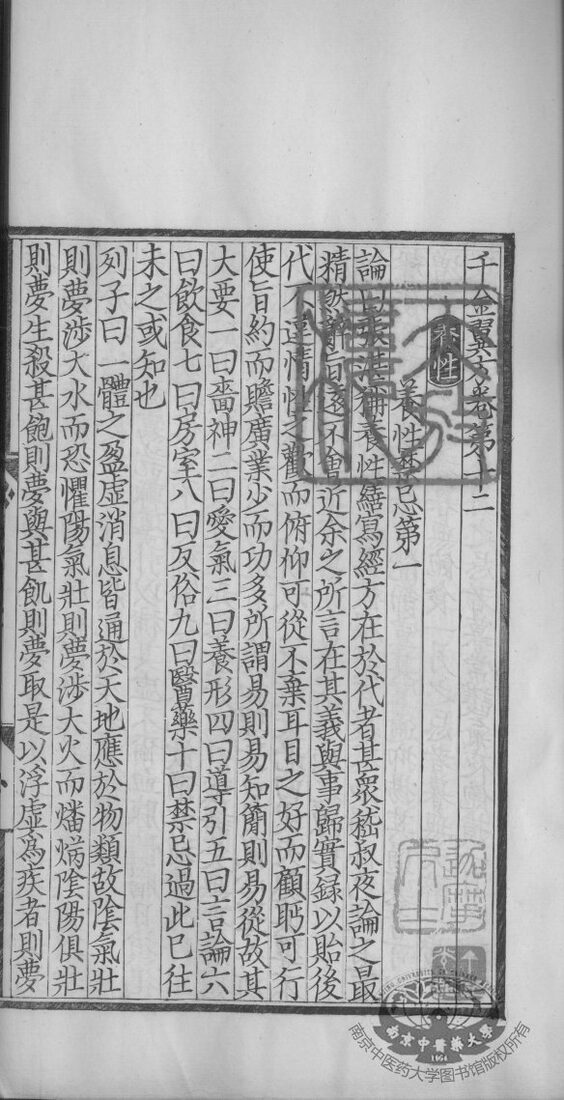 千金翼方卷第十二
養性
養性禁忌第一
論曰張湛稱養性繕寫經方在於代者甚眾嵇叔夜論之最
精然辭旨遠不會近余之所言在其義與事歸實錄以貽後
代不違情性之歡而俯仰可從不棄耳目之好而顧眄可行
使旨約而贍廣業少而功多所謂易則易知簡則易從故其
大要一曰嗇神二曰愛氣三曰養形四曰導引五曰言論六
曰飲食七曰房室八曰反俗九曰醫藥十曰禁忌過此已往
未之或知也
列子曰一體之盈虛消息皆通於天地應於物類故陰氣壯
則夢涉大水而恐懼陽氣壯則夢涉大火而燔焫陰陽俱壯
則夢生殺甚飽則夢與甚飢則夢取是以浮虛為疾者則夢
南京中醫藥大學
1954
南京中医药大学图书馆版权所有